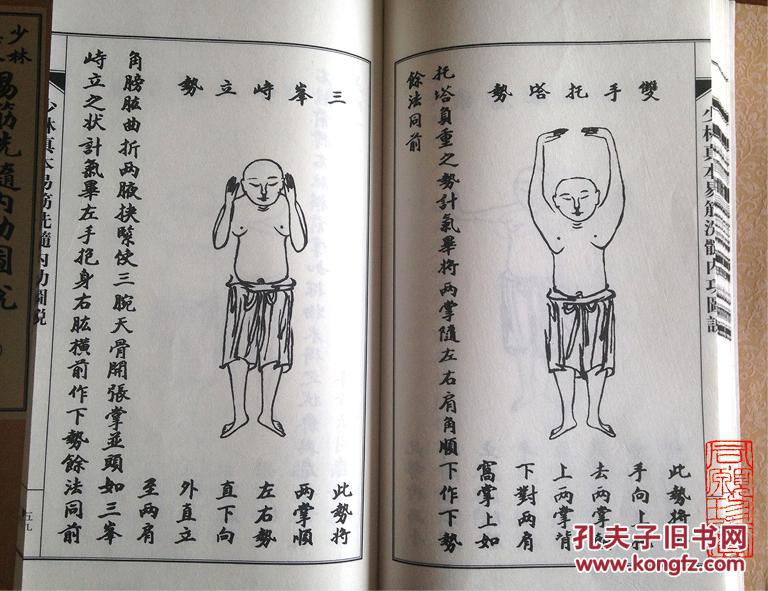 少林真本易筋洗髓內功圖說
雙手托塔勢
此勢將
手向上
去两掌
上两掌背
下對两肩
窩掌上如
托塔負重之勢計氣畢將两掌隨左右肩角順下作下勢
餘法同前
三峯峙立勢
此勢將
两掌順
左右勢
直下向
外直立
至两肩
角膀肱曲折两腋挾緊使三腕天骨開張掌並頭如三峯
峙立之狀計氣畢左手抱身右肱橫前作下勢餘法同前
少林真本易筋洗髓內功圖說
五九
少林
易筋洗髓內功圖說
孔夫子旧书网
BOOK.KONGFZ.COM